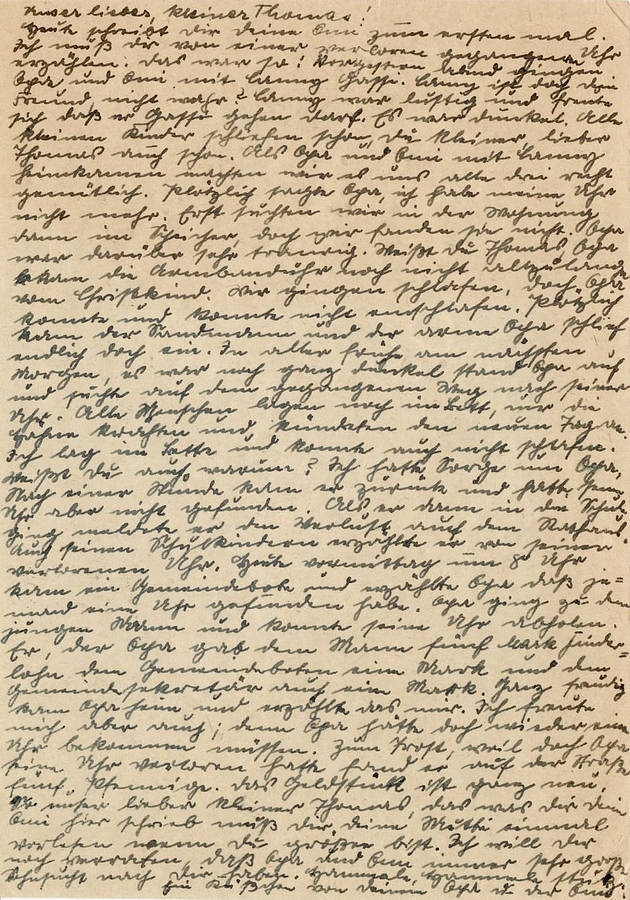 Unser lieber, kleiner Thomas!
Heute schreibt dir deine Omi zum ersten mal.
Ich muß dir von einer verloren gegangenen Uhr
erzählen. Das war so! Vorgestern abend gingen
Opa und Omi mit Lanny Gassi. Lanny ist doch dein
Freund nicht wahr? Lanny war lustig und freute
sich daß er Gassi gehen darf. Es war dunkel. Alle
kleinen Kinder schliefen schon, du kleiner, lieber
Thomas auch schon. Als Opa und Omi mit Lanny
heimkamen machten wir es uns alle drei recht
gemütlich. Plötzlich sagte Opa, ich habe meine Uhr
nicht mehr. Erst suchten wir in der Wohnung
dann im Speicher, doch wir fanden sie nicht. Opa
war darüber sehr traurig. Weißt du Thomas, Opa
bekam die Armbanduhr noch nicht allzulang
vom Christkind. Wir gingen schlafen, doch Opa
konnte und konnte nicht einschlafen. Plötzlich
kam der Sandmann und der arme Opa schlief
endlich doch ein. In aller frühe am nächsten
Morgen, es war noch ganz dunkel stand Opa auf
und suchte auf dem gegangenen Weg nach seiner
Uhr. Alle Menschen lagen noch im Bett, nur die
Hähne krähten und kündeten den neuen Tag an.
Ich lag im Bette und konnte auch nicht schlafen.
Weißt du auch warum? Ich hatte Sorge um Opa.
Nach einer Stunde kam er zurück und hatte seine
Uhr aber nicht gefunden. Als er dann in die Schule
ging meldete er den Verlust auf dem Rathaus.
Auch seinen Schulkindern erzählte er von seiner
verlorenen Uhr. Heute vormittag um 8 Uhr
kam ein Gemeindebote und erzählte Opa daß je=
mand eine Uhr gefunden habe. Opa ging zu dem
jungen Mann und konnte seine Uhr abholen.
Er, der Opa gab dem Mann fünf Mark Finder=
lohn dem Gemeindeboten eine Mark und dem
Gemeindesekretär auch eine Mark. Ganz freudig
kam Opa heim und erzählte das mir. Ich freute
mich aber auch; denn Opa hätte doch wieder eine
Uhr bekommen müssen. Zum Trost, weil doch Opa
seine Uhr verloren hatte fand er auf der Straße
fünf Pfennige. Das Geldstück ist ganz neu.
So unser lieber kleiner Thomas, das was dir dein
Omi hier schrieb muß dir deine Mutti einmal
vorlesen wenn du größer bist. Ich will dir
noch verraten, daß Opa und Omi immer sehr große
Sehnsucht nach dir haben.
Ein Küßchen von deinem Opa u der Omi